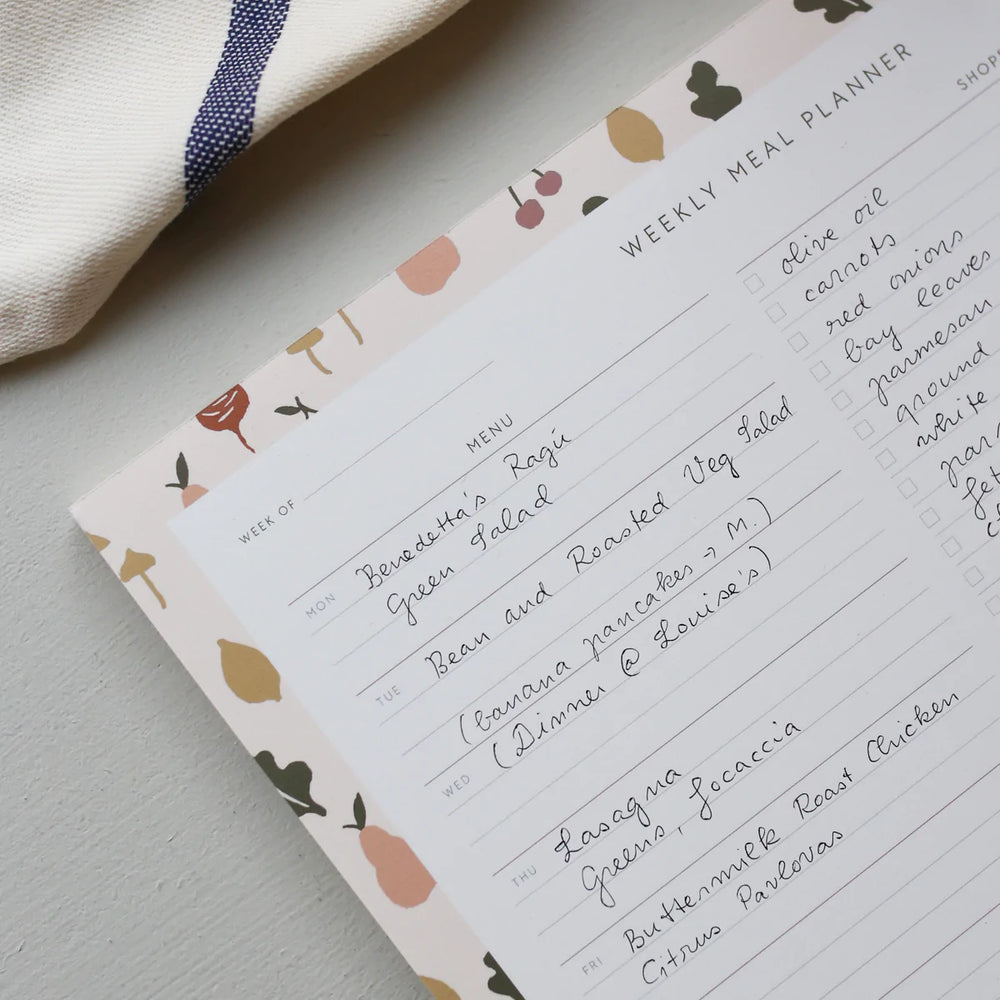 WEEKLY MEAL PLANNER
WEEK OF
MENU
MON
Benedetta's Ragú
Green Salad
TUE
Bean and Roasted Veg Salad
(banana pancakes → M.)
WED
(Dinner @ Louise's)
THU
Lasagna
Greens, focaccia
FRI
Buttermilk Roast Chicken
Citrus Pavlovas
olive oil
carrots
red onions
bay leaves
parmesan
ground
white